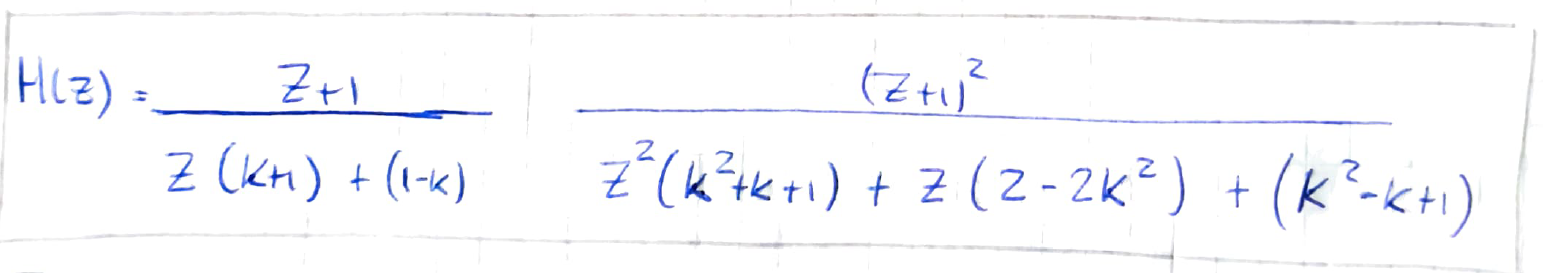 H(z) = z+1 (z+1)²
z (k+1) + (1-k) z²(k²+k+1) + z (2-2k²) + (k²-k+1)